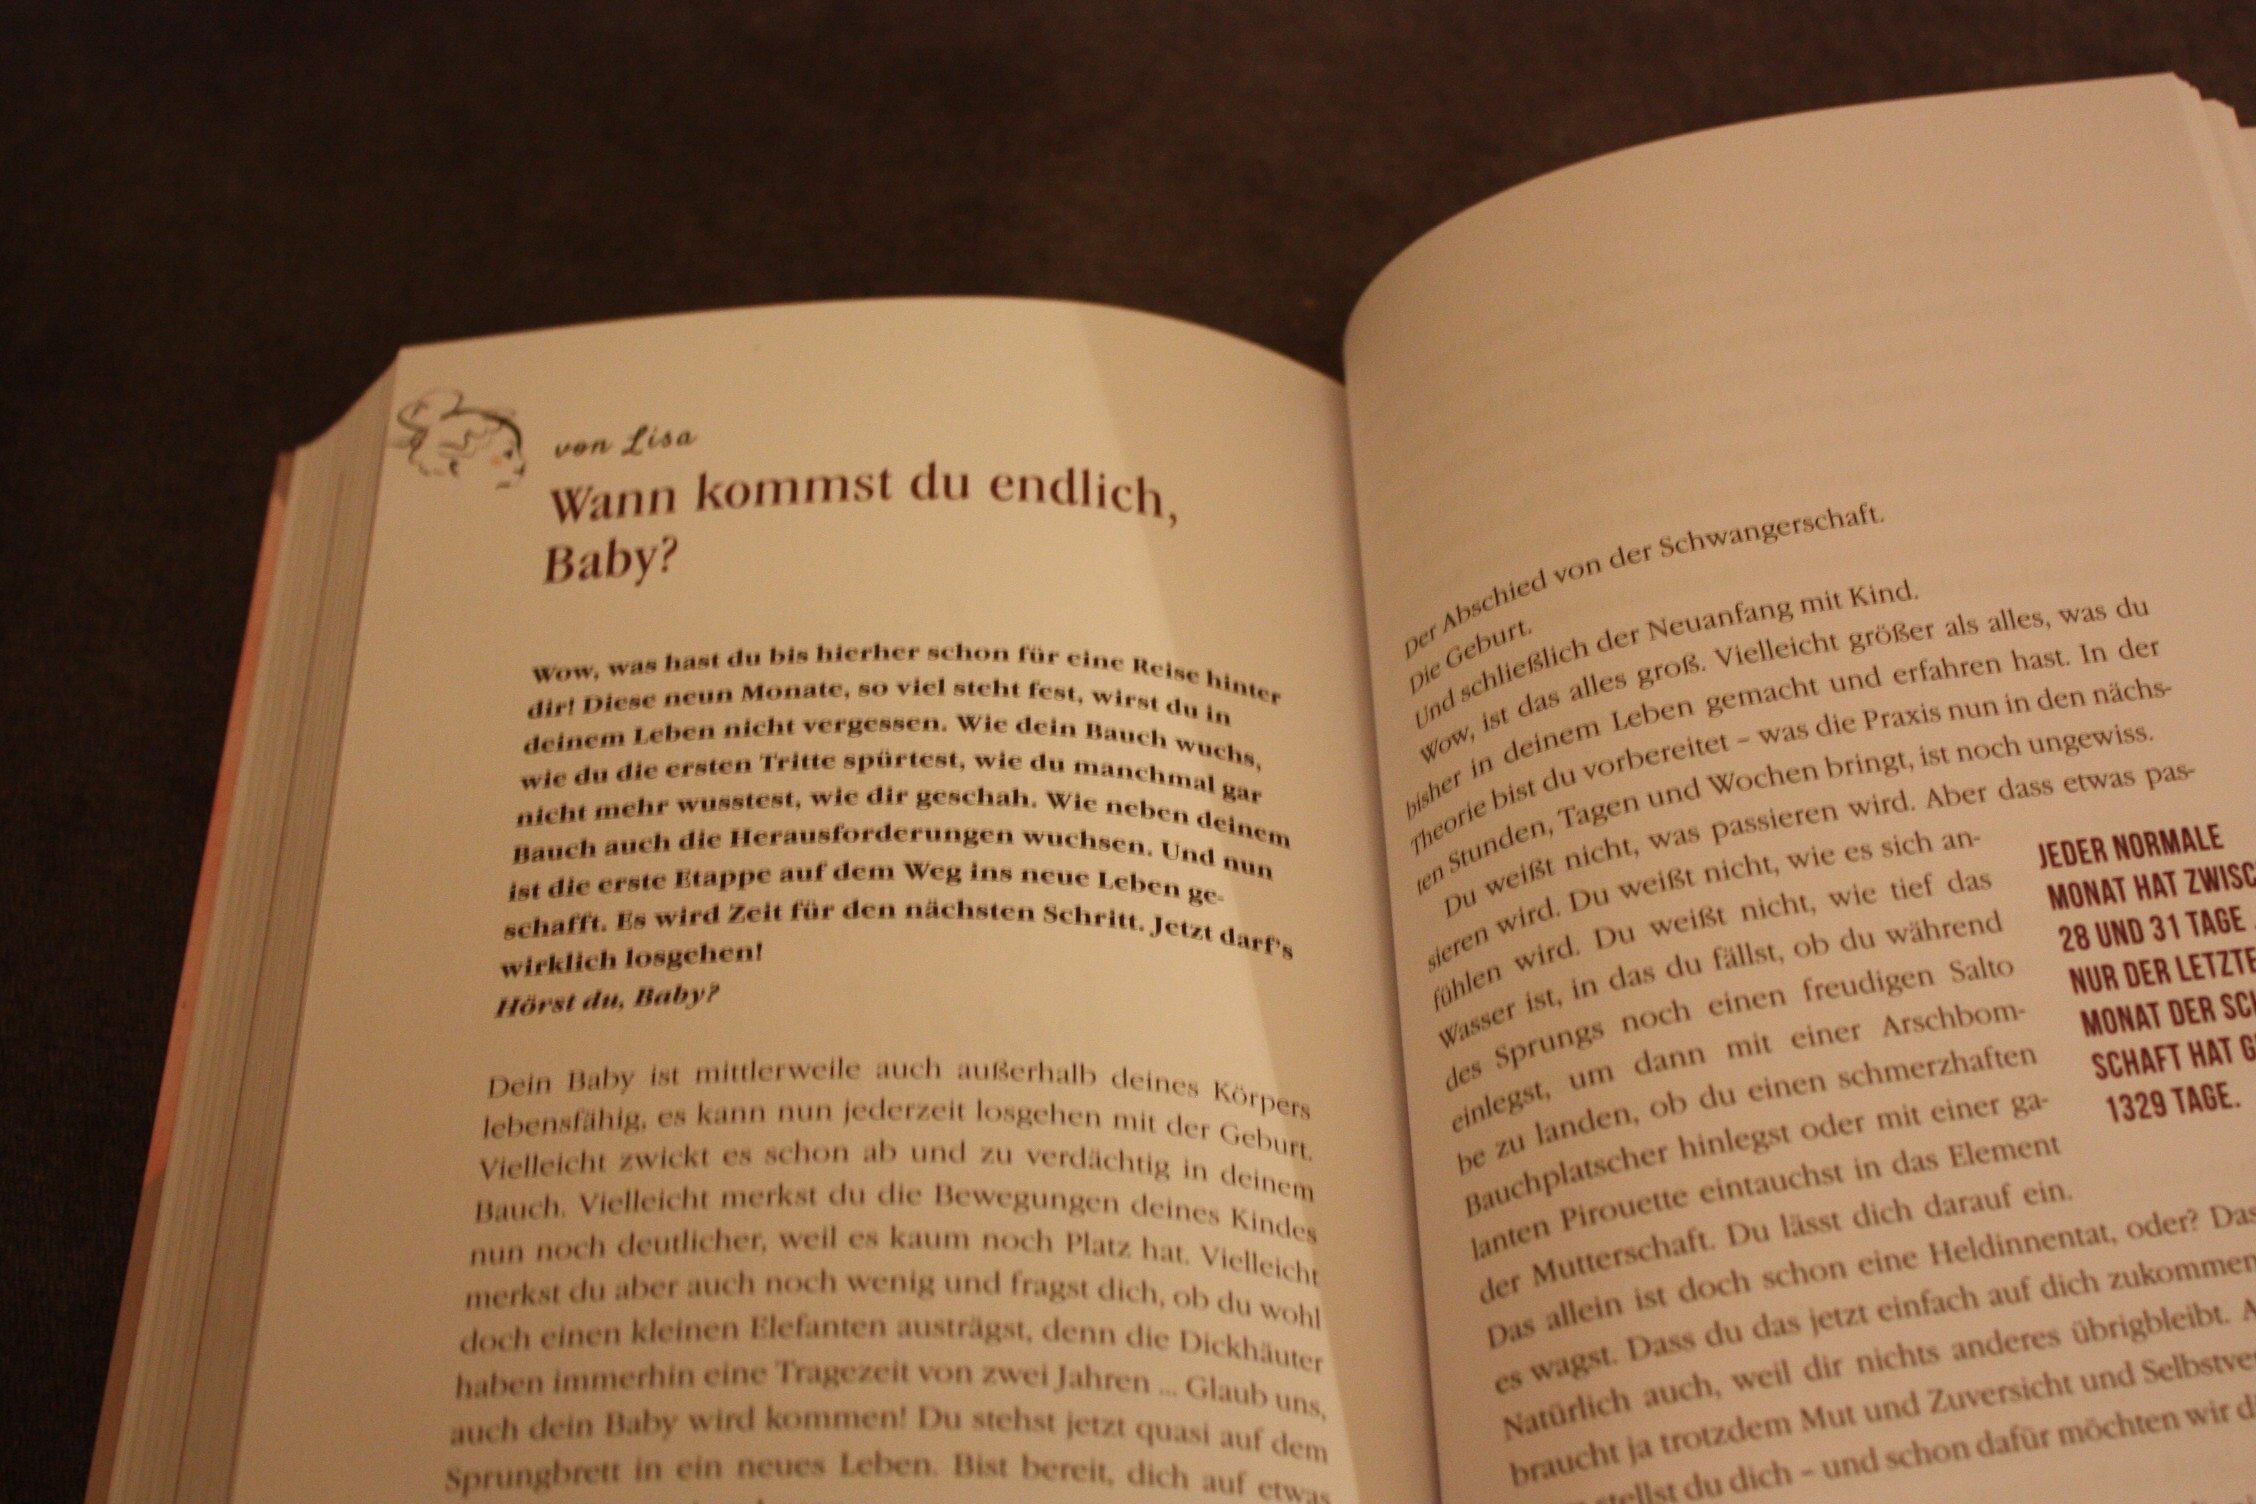 von Lisa
Wann kommst du endlich,
Baby?
Wow, was hast du bis hierher schon für eine Reise hinter
dir! Diese neun Monate, so viel steht fest, wirst du in
deinem Leben nicht vergessen. Wie dein Bauch wuchs,
wie du die ersten Tritte spürtest, wie du manchmal gar
nicht mehr wusstest, wie dir geschah. Wie neben deinem
Bauch auch die Herausforderungen wuchsen. Und nun
ist die erste Etappe auf dem Weg ins neue Leben ge-
schafft. Es wird Zeit für den nächsten Schritt. Jetzt darf's
wirklich losgehen!
Hörst du, Baby?
Dein Baby ist mittlerweile auch außerhalb deines Körpers
lebensfähig, es kann nun jederzeit losgehen mit der Geburt.
Vielleicht zwickt es schon ab und zu verdächtig in deinem
Bauch. Vielleicht merkst du die Bewegungen deines Kindes
nun noch deutlicher, weil es kaum noch Platz hat. Vielleicht
merkst du aber auch noch wenig und fragst dich, ob du wohl
doch einen kleinen Elefanten austrägst, denn die Dickhäuter
haben immerhin eine Tragezeit von zwei Jahren ... Glaub uns,
auch dein Baby wird kommen! Du stehst jetzt quasi auf dem
Sprungbrett in ein neues Leben. Bist bereit, dich auf etwas
Der Abschied von der Schwangerschaft.
Die Geburt.
Und schließlich der Neuanfang mit Kind.
Wow, ist das alles groß. Vielleicht größer als alles, was du
bisher in deinem Leben gemacht und erfahren hast. In der
Theorie bist du vorbereitet – was die Praxis nun in den nächs-
ten Stunden, Tagen und Wochen bringt, ist noch ungewiss.
Du weißt nicht, was passieren wird. Aber dass etwas pas-
sieren wird. Du weißt nicht, wie es sich an-
fühlen wird. Du weißt nicht, wie tief das
Wasser ist, in das du fällst, ob du während
des Sprungs noch einen freudigen Salto
einlegst, um dann mit einer Arschbom-
be zu landen, ob du einen schmerzhaften
Bauchplatscher hinlegst oder mit einer ga-
lanten Pirouette eintauchst in das Element
der Mutterschaft. Du lässt dich darauf ein.
Das allein ist doch schon eine Heldinnentat, oder? Das
es wagst. Dass du das jetzt einfach auf dich zukommen
Natürlich auch, weil dir nichts anderes übrigbleibt. A
braucht ja trotzdem Mut und Zuversicht und Selbstve
stellst du dich – und schon dafür möchten wir d
JEDER NORMALE
MONAT HAT ZWISC
28 UND 31 TAGE
NUR DER LETZTE
MONAT DER SCH
SCHAFT HAT G
1329 TAGE.